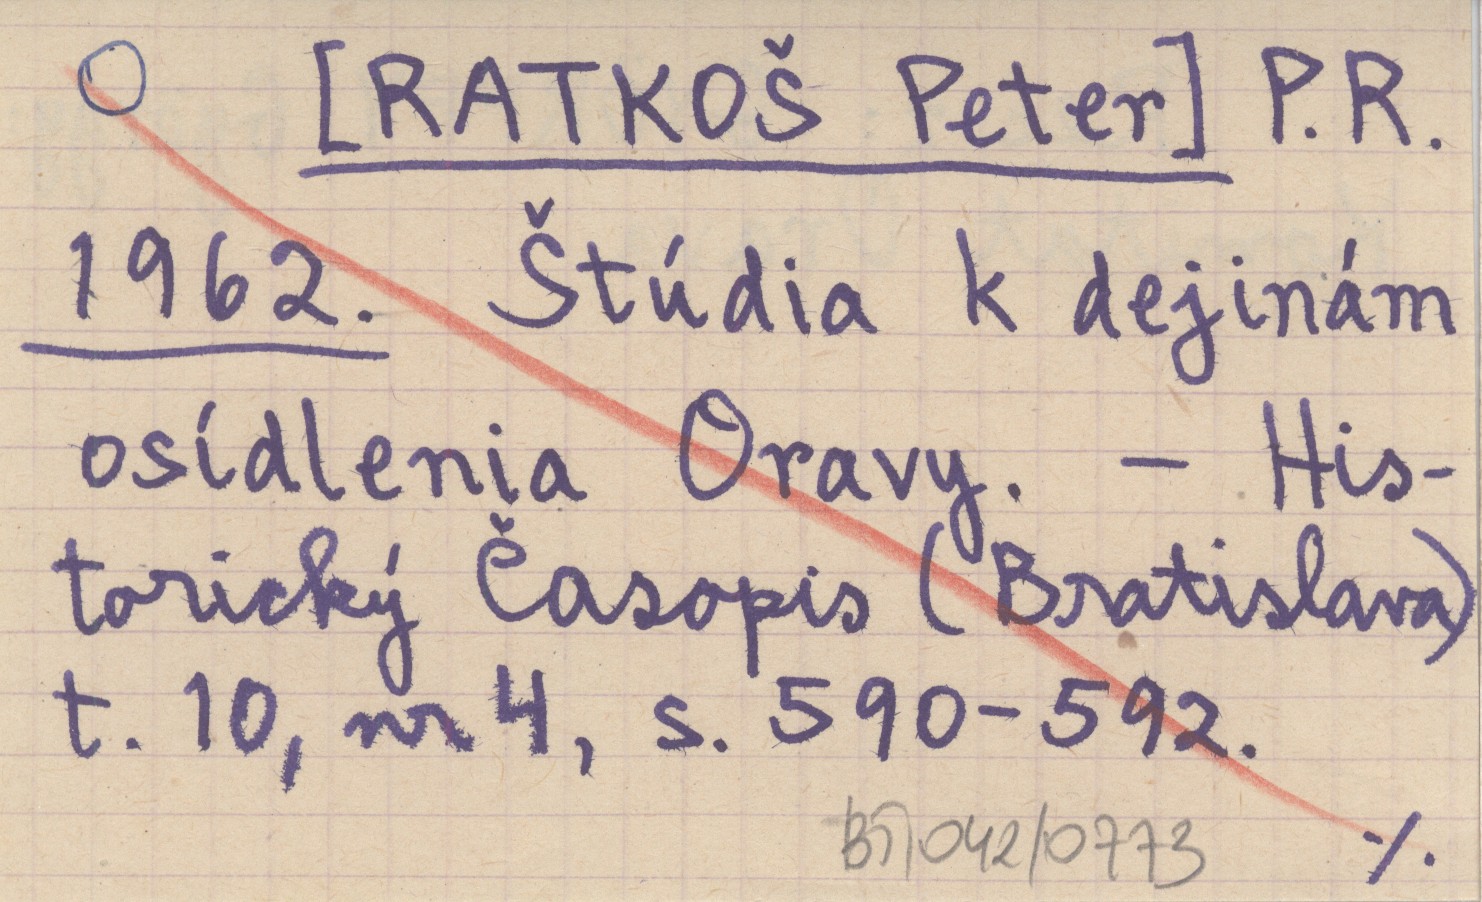 [RATKOŠ Peter] P.R.
1962. Štúdia k dejinám
osídlenia Oravy. – His-
torický Časopis (Bratislava)
t. 10, nr 4, s. 590-592.
042/0773
./.